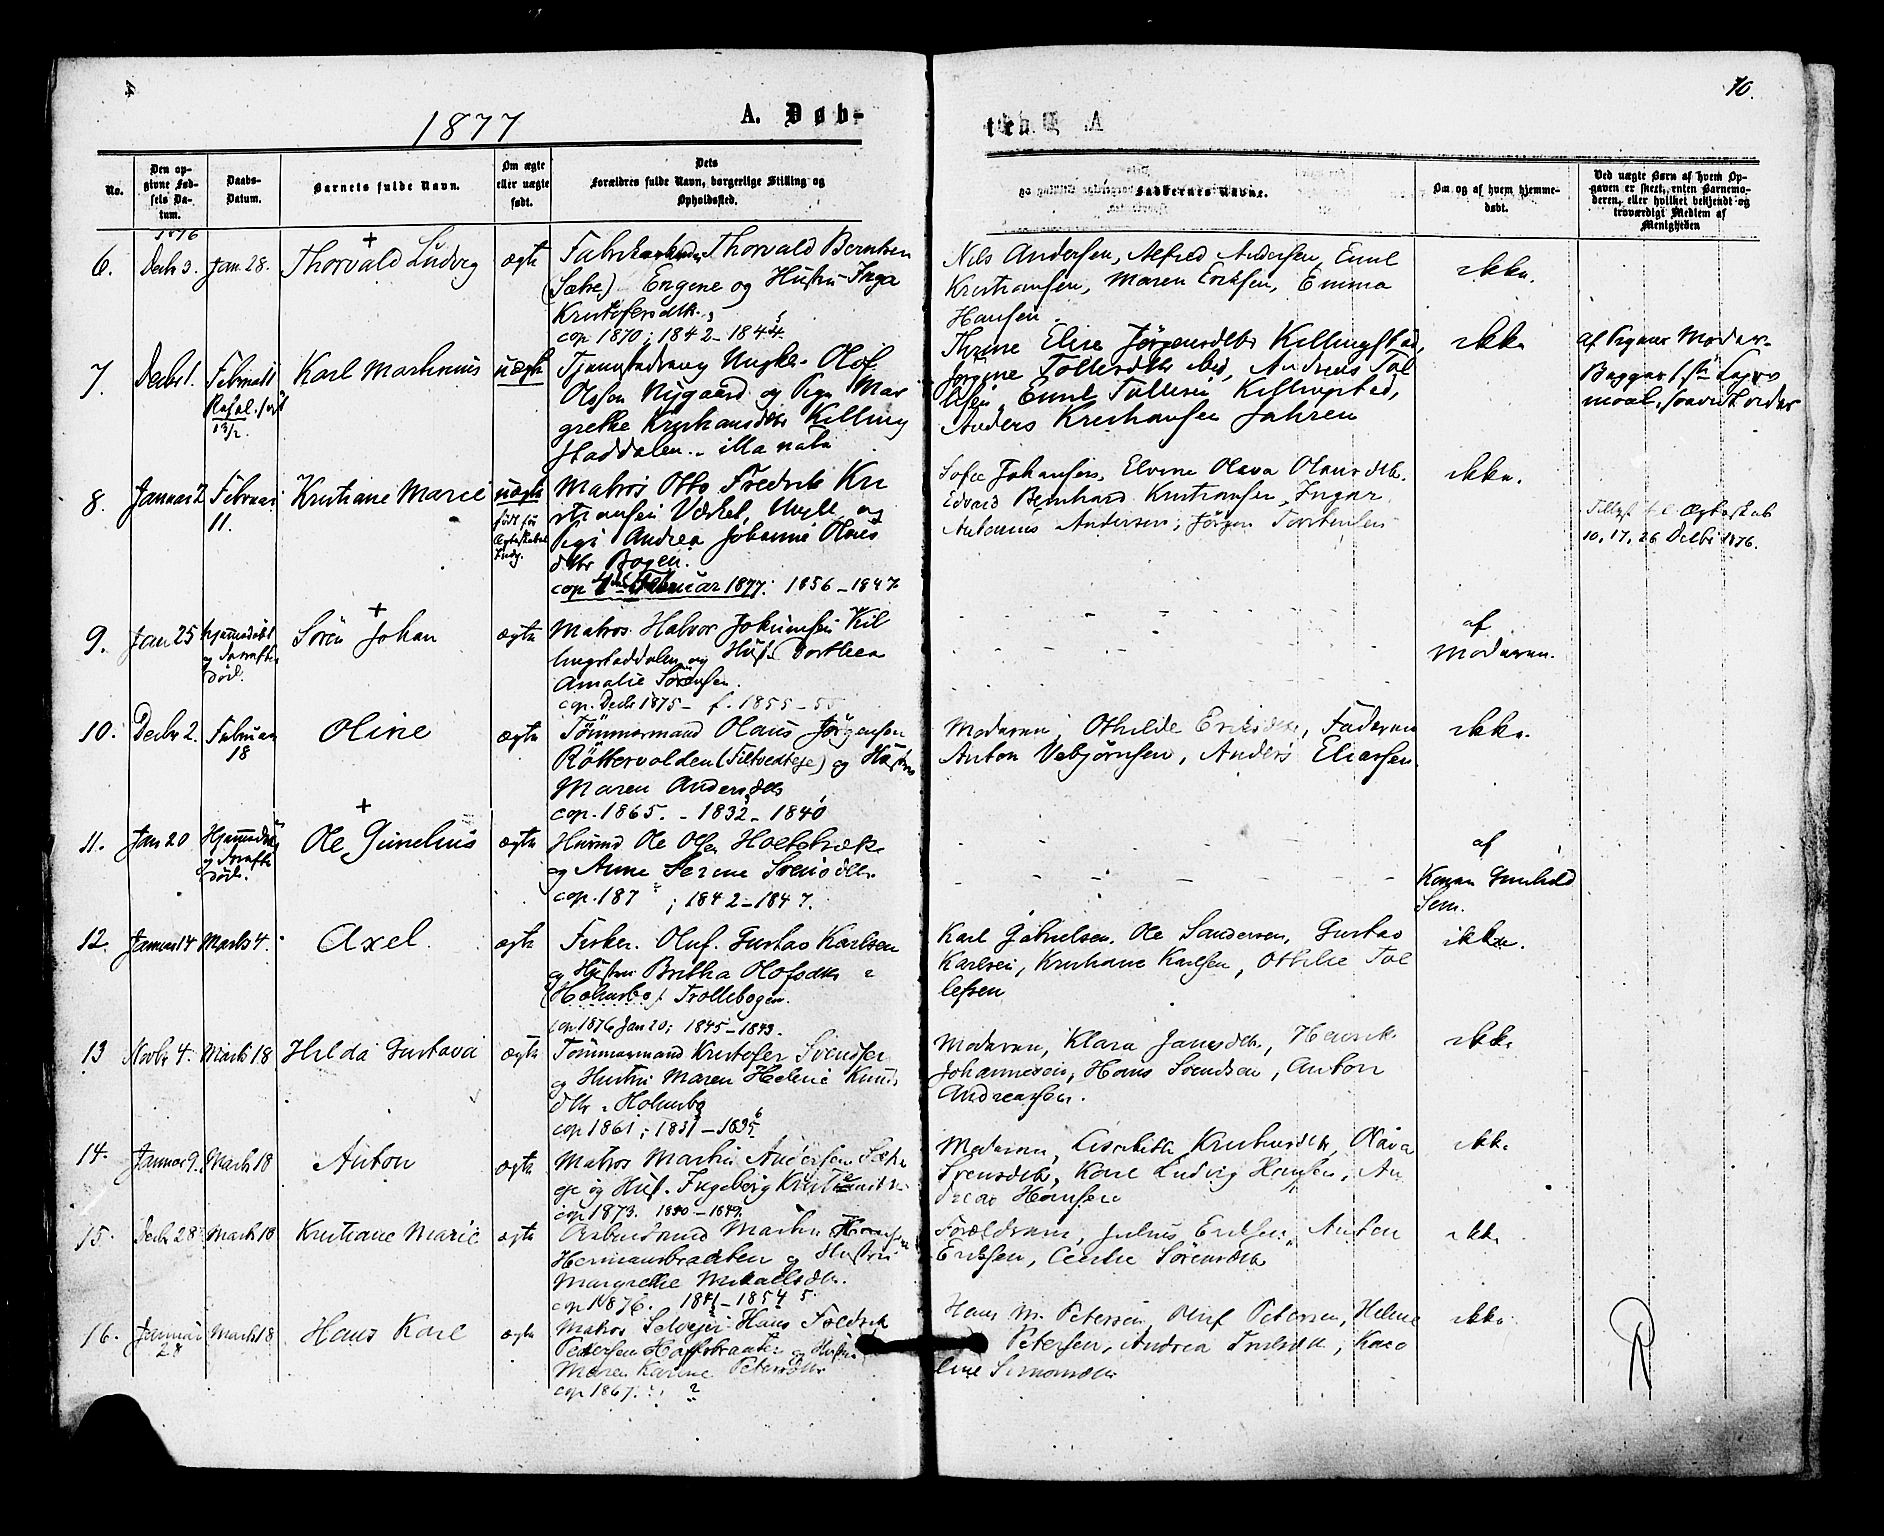 1877
A. Døb-
te.
10.
No.
Den op-
givne Fød-
sels Da-
tum.
Daabs-
Datum.
Barnets fulde Navn.
Om ægte
eller uægte
født.
Dets
Forældres fulde Navn, borgerlige Stilling og
Opholdssted.
Faddernes Navne.
Om og af hvem hjemme-
døbt.
Ved uægte Børn af hvem Op-
gaven er skeet, enten Barnemo-
deren, eller hvilket bekjendt og
troværdigt Medlem af
Menigheden
1876
6. Decbr 3. Jan. 28. Thorvald Ludvig ægte
Thorvald Berntsen
(Sætre) Engene og Hustru Inga
Kristofersdtr.
cop 1870; 1842-1844
Nils Andersen, Alfred Andersen, Emil
Kristiansen, Maren Eriksen, Emma
Hansen.
ikke.
7. Decbr 1. Februar 11 Karl Martinius uægte
13/2
Olof
Olsson Nygaard og Pige Mar
grethe Kristiansdtr Killing
staddalen.
Elise Jørgensdtr Killingstad,
Jørgine Tollefsdtr ibid, Andreas Tol
lefsen, Emil Tollefsen Killingstad,
Anders Kristiansen Jahren
ikke
af Pigens Moder
8. Januar 2 Februar
11.
Kristiane Marie uægte
født før
Matros Otto Fredrik Kri
stiansen Værket, Ungk. og
Pige Andrea Johanne Olaus
dtr Bogen.
cop Februar 1877. 1856-1847
Sofie Johansen, Elvine Olava Olausdtr.
Edvard Bernhard Kristiansen, Ingar
Antonius Andersen, Jørgen Torstensen
ikke.
Ægteskab
10, 17, 26 Decbr 1876.
9. Jan 25 Hjemmedøbt
og
død.
Søren Johan ægte
Matros Halvor Jokumsen Kil
lingstaddalen og Hust. Dorthea
Amalie Sørensen.
cop. Decbr 1875 - f. 1855-55
af
Moderen.
10. Decbr 2. Februar
18
Oline ægte
Tømmermand Olaus Jørgensen
Røttervolden (Tiltvedteje) og Hustru
Maren Andersdtr
cop. 1865. - 1832-1840
Moderen, Othilde Eriksdtr, Faderen
Anton Vebjørnsen, Anders Eliassen.
ikke.
11. Jan 20 Hjemmedøbt
og
død.
Ole Gunelius ægte
Ole Olsen Holtebræk
og Anne Serine Svensdtr
cop. 187 ? ; 1842-1847.
af
Konen Gunhild
Sem.
12. Januar 14 Marts 4. Axel. ægte
Fisker Oluf Gustav Karlsen
og Hustru Britha Olofsdtr
(Holmsbo) Trollebogen.
cop 1876 Jan 20; 1845-1843.
Karl Gabrielsen, Ole Sandersen, Gustav
Karlsen, Kristiane Karlsen, Othilie Tol
lefsen
ikke.
13 Novbr 4. Marts 18. Hilda Gustava ægte
Tømmermand Kristofer Svendsen
og Hustru Maren Helene Knuds
dtr. Holmsbo
cop 1861; 1831-1835
Moderen, Klara Jansdtr, Henrik
Johannesen, Hans Svendsen, Anton
Andreassen.
ikke
14. Januar 9. Marts 18 Anton ægte
Matros Martin Andersen Sætre
eje og Hust. Ingeborg
cop 1873. 1840-1849.
Moderen, Lisabeth Kristiansdtr, Olava
Svensdtr, Karl Ludvig Hansen, An
dreas Hansen
ikke
15. Decbr 28 Marts 18 Kristiane Marie ægte
Arbeidsmand Martin Hansen
Hermansbraaten og Hustru
Margrethe Mikaelsdtr.
cop 1876. 1841-1854
Forældrene, Julius Eriksen, Anton
Eriksen, Cecilie Sørensdtr
ikke
16. Januar
28
Marts 18 Hans Karl ægte
Matros Selvejer Hans Fredrik
Pedersen Hoffsbraaten og Hustru
Maren Karine Petersdtr
cop 1867. ?
Hans M. Petersen, Oluf Petersen, Helene
Petersen, Andrea Truls­dtr, Karo
line Simonsdtr
ikke